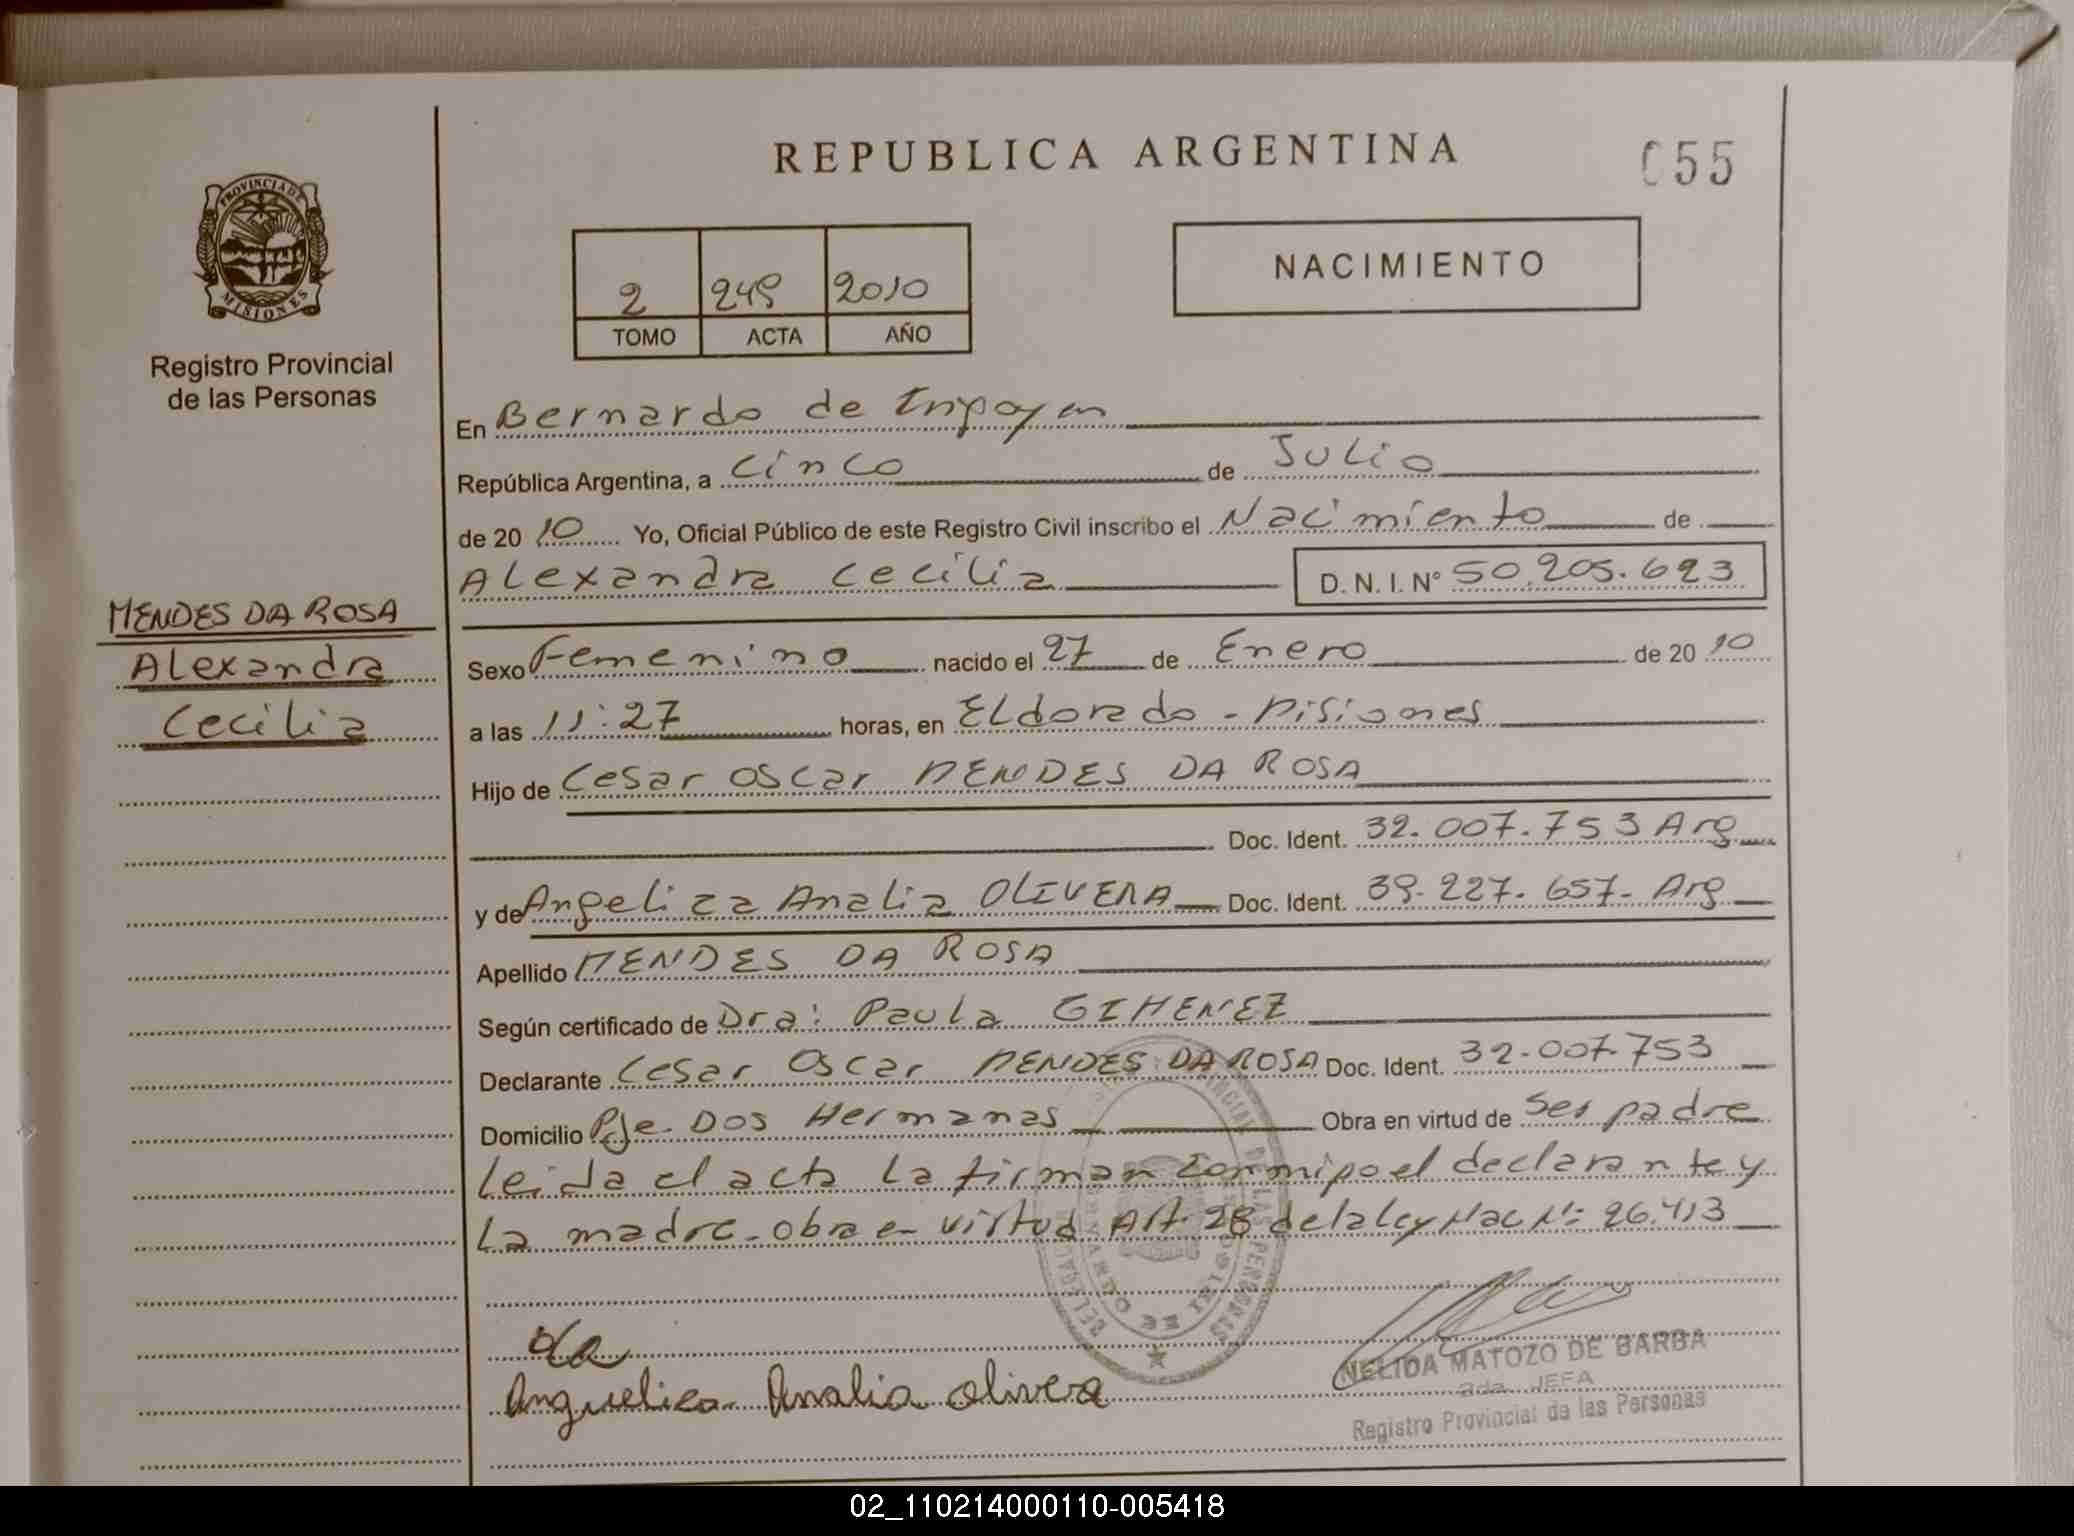 REPUBLICA ARGENTINA
055
PROVINCIA DE
MISIONES
Registro Provincial
de las Personas
2 249 2010
TOMO ACTA AÑO
NACIMIENTO
En Bernardo de Irigoyen
República Argentina, a Cinco de Julio
de 2010 Yo, Oficial Público de este Registro Civil inscribo el Nacimiento de
Alexandra Cecilia D.N.I.N° 50.205.623
MENDES DA ROSA
Alexandra
Cecilia
Sexo Femenino nacido el 27 de Enero de 2010
a las 11:27 horas, en Eldorado - Misiones
Hijo de Cesar Oscar MENDES DA ROSA
Doc. Ident. 32.007.753 Arg
y de Angelica Analia OLIVERA Doc. Ident. 39.227.657- Arg
Apellido MENDES DA ROSA
Según certificado de Dra: Paula GIMENEZ
Declarante Cesar Oscar MENDES DA ROSA Doc. Ident. 32.007.753
Domicilio Pje. Dos Hermanas Obra en virtud de Ser padre
Leida el acta La firman Conmigo el declarante y
La madre. obra en virtud Art. 28 de la ley Nac N: 26.413
Anguelica Analia olivera
NELIDA MATOZO DE BARBA
2da. JEFA
Registro Provincial de las Personas
02_110214000110-005418